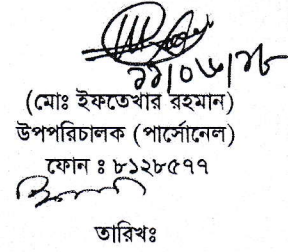 ২১/০৬/১৮
(মোঃ ইফতেখার রহমান)
উপপরিচালক (পার্সোনেল)
ফোন ঃ ৮১২৮৫৭৭
তারিখঃ